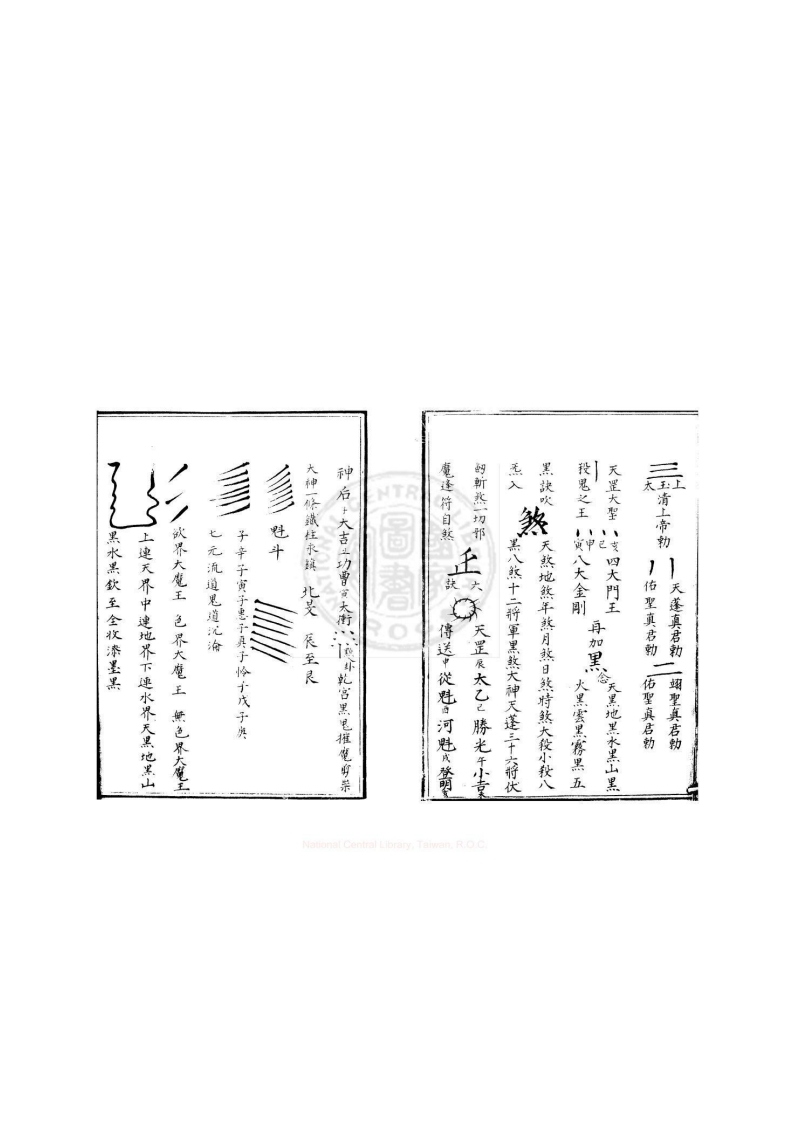 三
上玉太清上帝勅
天蓬真君勅 翊聖真君勅
佑聖真君勅 二 佑聖真君勅
天罡大聖 亥巳 四大門王 天黑地黑水黑山黑
殺鬼之王 申寅 八大金剛 再加黑 念 火黑雲黑霧黑五
黑訣吹 煞 天煞地煞年煞月煞日煞時煞大殺小殺八
炁入 黑八煞十二將軍黑煞大神天蓬三十六將伏
斬煞一切邪 天罡辰太乙巳勝光午小吉未
魔逢符自煞 訣 傳送申從魁酉河魁戌登明亥
神后子大吉丑功曹寅太衝 乾宮黑鬼摧魔
大神一條鐵柱永鎮 北 艮至艮
魁斗
子辛子寅子惠子真子怜子戊子
七元流道鬼道沉淪
欲界大魔王 色界大魔王 無色界大魔王
上連天界中連地界下連水界天黑地黑山
黑水黑欽至全收漆墨黑
National Central Library, Taiwan, R.O.C.